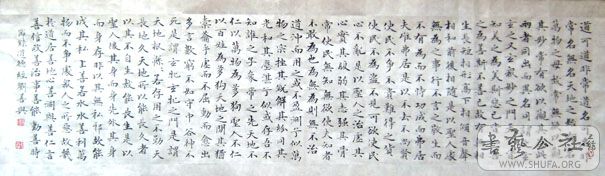 道可道非常道名可名非
常名無名天地之始有名
萬物之母故常無欲以觀
其妙常有欲以觀其徼此
兩者同出而異名同謂
之玄之又玄眾妙之門天下皆
知美之為美斯惡已皆知善
之為善斯不善已有無相生難易相成
生長短相形高下相傾音聲
相和前後相隨是以聖人處
無為之事行不言之教萬物作
焉而不辭生而不有為而不恃功成而弗居
夫唯弗居是以不去不尚賢
使民不爭不貴難得之貨
使民不為盜不見可欲使民
心不亂是以聖人之治虛其
心實其腹弱其志強其骨
常使民無知無欲使夫知者
不敢為也為無為則無不治
道沖而用之或不盈淵兮似萬
物之宗挫其銳解其紛和其
光同其塵湛兮似或存吾不
知誰之子象帝之先天地不
仁以萬物為芻狗聖人不仁
以百姓為芻狗天地之間其猶
橐龠乎虛而不屈動而愈出
多言數窮不如守中谷神不
死是謂玄牝玄牝之門是謂
天地根綿綿若存用之不勤天
長地久天地所以能長且久者
以其不自生故能長生是以
聖人後其身而身先外其身
而身存非以其無私邪故能
成其私上善若水水善利萬
物而不爭處眾人之所惡故幾
於道居善地心善淵與善仁言
善信政善治事善能動善時
節錄道德經
書藝公社
WWW.SHUFA.ORG